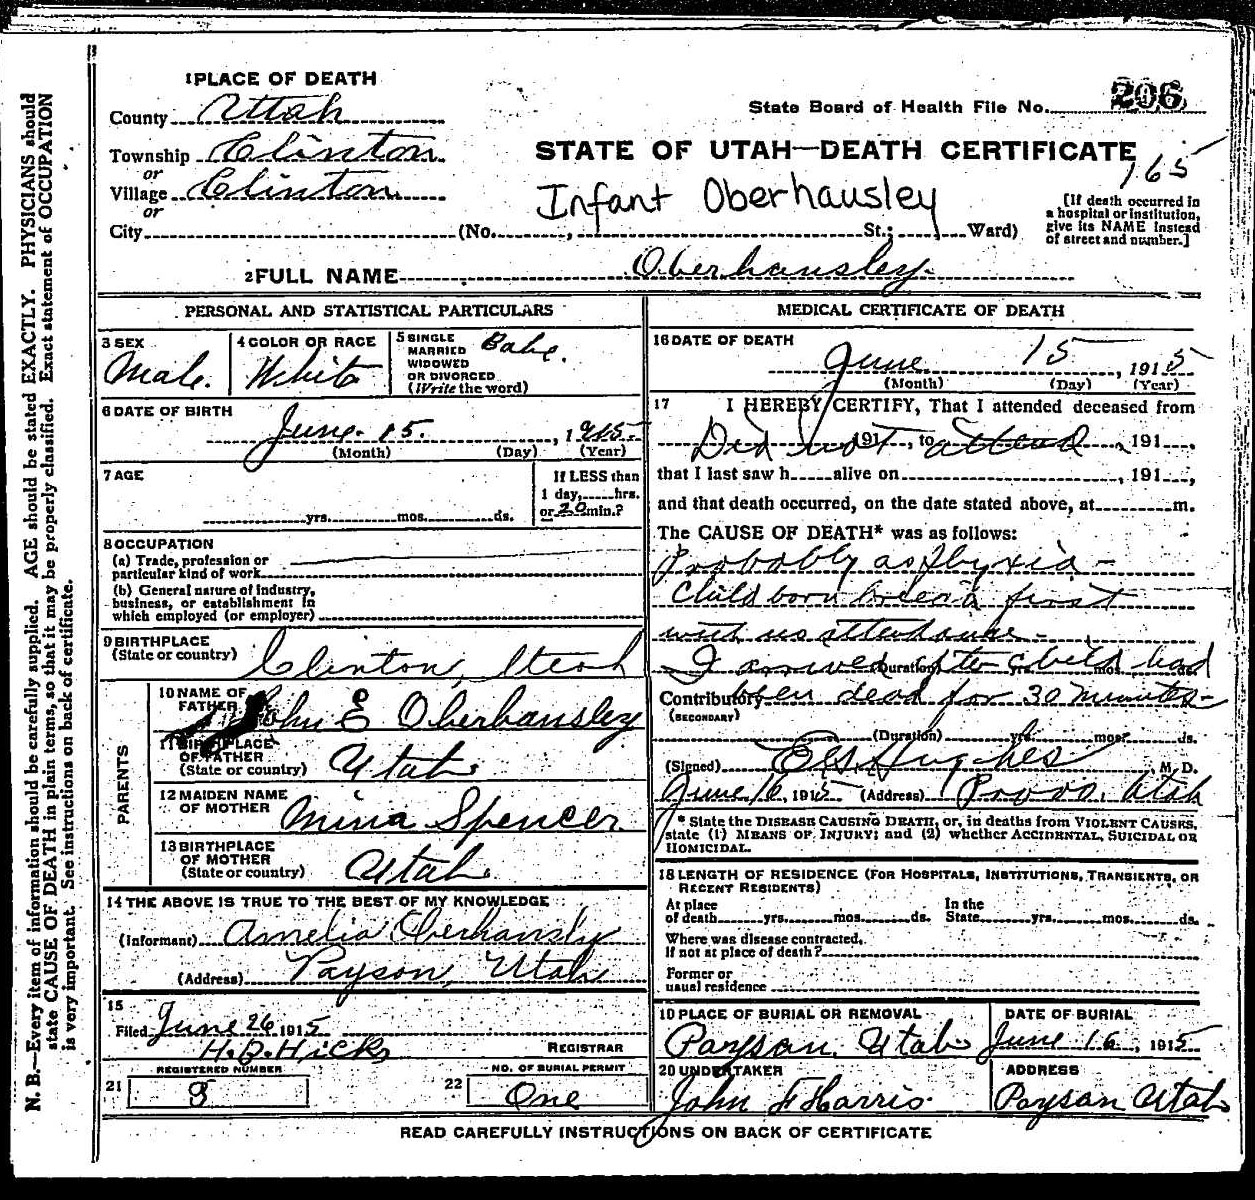 1 PLACE OF DEATH
County Utah
State Board of Health File No. 206
Township Clinton
or
STATE OF UTAH—DEATH CERTIFICATE
165
Village Clinton
or
Infant Oberhausley
[If death occurred in
a hospital or institution,
give its NAME instead
of street and number.]
City (No. , St.; Ward)
2 FULL NAME Oberhansley.
PERSONAL AND STATISTICAL PARTICULARS
3 SEX
Male.
4 COLOR OR RACE
White
5 SINGLE
MARRIED
WIDOWED
OR DIVORCED
(Write the word)
Babe.
6 DATE OF BIRTH
June. 15. , 1915.
(Month) (Day) (Year)
7 AGE
yrs. mos. ds.
If LESS than
1 day, hrs.
or 20 min.?
8 OCCUPATION
(a) Trade, profession or
particular kind of work
(b) General nature of Industry,
business, or establishment in
which employed (or employer)
9 BIRTHPLACE
(State or country) Clinton, Utah
PARENTS
10 NAME OF
FATHER John E Oberhansley
11 BIRTHPLACE
OF FATHER
(State or country) Utah
12 MAIDEN NAME
OF MOTHER Mina Spencer
13 BIRTHPLACE
OF MOTHER
(State or country) Utah
14 THE ABOVE IS TRUE TO THE BEST OF MY KNOWLEDGE
(Informant) Amelia Oberhansly
(Address) Payson, Utah
15
Filed June 26 1915
H.B. Hicks REGISTRAR
21 REGISTERED NUMBER
22 NO. OF BURIAL PERMIT
One
MEDICAL CERTIFICATE OF DEATH
16 DATE OF DEATH
June 15 , 1915
(Month) (Day) (Year)
17 I HEREBY CERTIFY, That I attended deceased from
Did not attend
191 , to , 191 ,
that I last saw h alive on , 191 ,
and that death occurred, on the date stated above, at m.
The CAUSE OF DEATH* was as follows:
Probably asphyxia -
Child born first
with no attendance -
I arrived after child had
(Duration) yrs. mos. ds.
Contributory been dead for 30 minutes -
(SECONDARY)
(Duration) yrs. mos. ds.
(Signed) Hughes , M. D.
June 16, 1915 (Address) Provo, Utah
* State the DISEASE CAUSING DEATH, or, in deaths from VIOLENT CAUSES,
state (1) MEANS OF INJURY; and (2) whether ACCIDENTAL, SUICIDAL OR
HOMICIDAL.
18 LENGTH OF RESIDENCE (FOR HOSPITALS, INSTITUTIONS, TRANSIENTS, OR
RECENT RESIDENTS)
At place In the
of death yrs. mos. ds. State yrs. mos. ds.
Where was disease contracted,
If not at place of death?
Former or
usual residence
19 PLACE OF BURIAL OR REMOVAL
Payson, Utah
DATE OF BURIAL
June 16 , 1915
20 UNDERTAKER
John F Harris
ADDRESS
Payson Utah
READ CAREFULLY INSTRUCTIONS ON BACK OF CERTIFICATE
N. B.—Every item of information should be carefully supplied. AGE should be stated EXACTLY. PHYSICIANS should
state CAUSE OF DEATH in plain terms, so that it may be properly classified. Exact statement of OCCUPATION
is very important. See instructions on back of certificate.